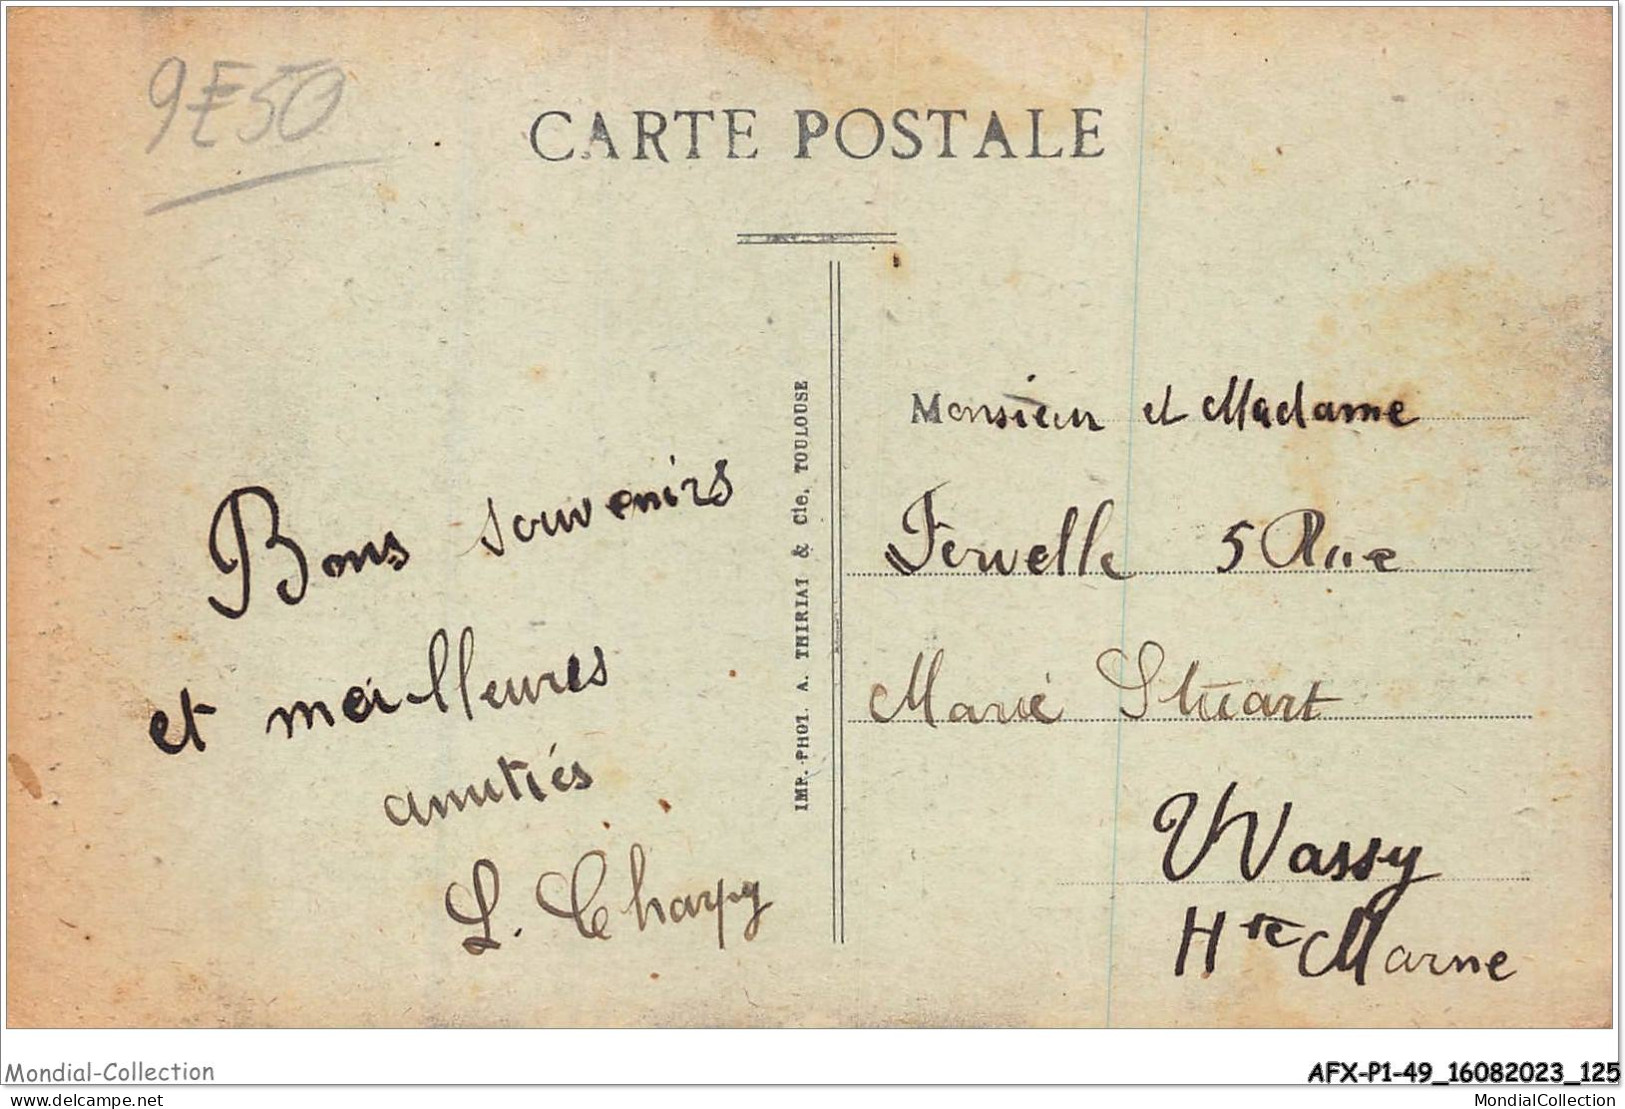 9E50
CARTE POSTALE
Bons souvenirs
et meilleures
amitiés
L. Charpy
IMP. PHOT. A. THIRIAT & Cie. TOULOUSE
Monsieur et Madame
Fervelle 5 Rue
Marie Stuart
Wassy
Hte Marne
Mondial-Collection
AFX-P1-49_16082023_125
delcampe.net
MondialCollection